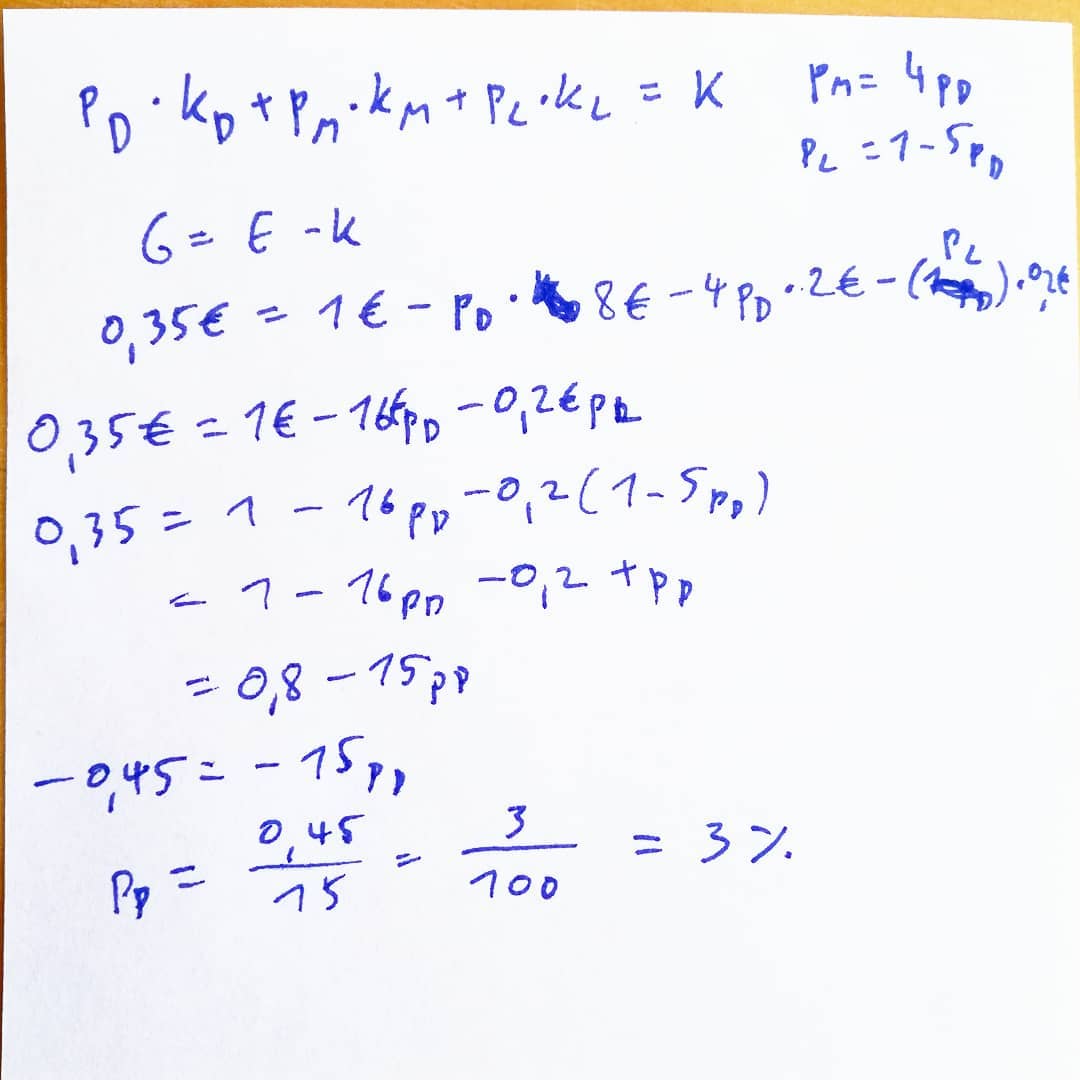 p_D · k_D + p_M · k_M + p_L · k_L = K
p_M = 4p_D
p_L = 1 - 5p_D
G = E - K
0,35€ = 1€ - p_D · 8€ - 4p_D · 2€ - (p_L) · 0,2€
0,35€ = 1€ - 16€p_D - 0,2€p_L
0,35 = 1 - 16p_D - 0,2(1 - 5p_D)
= 1 - 16p_D - 0,2 + p_D
= 0,8 - 15p_D
-0,45 = -15p_D
p_D = 0,45/15 = 3/100 = 3%